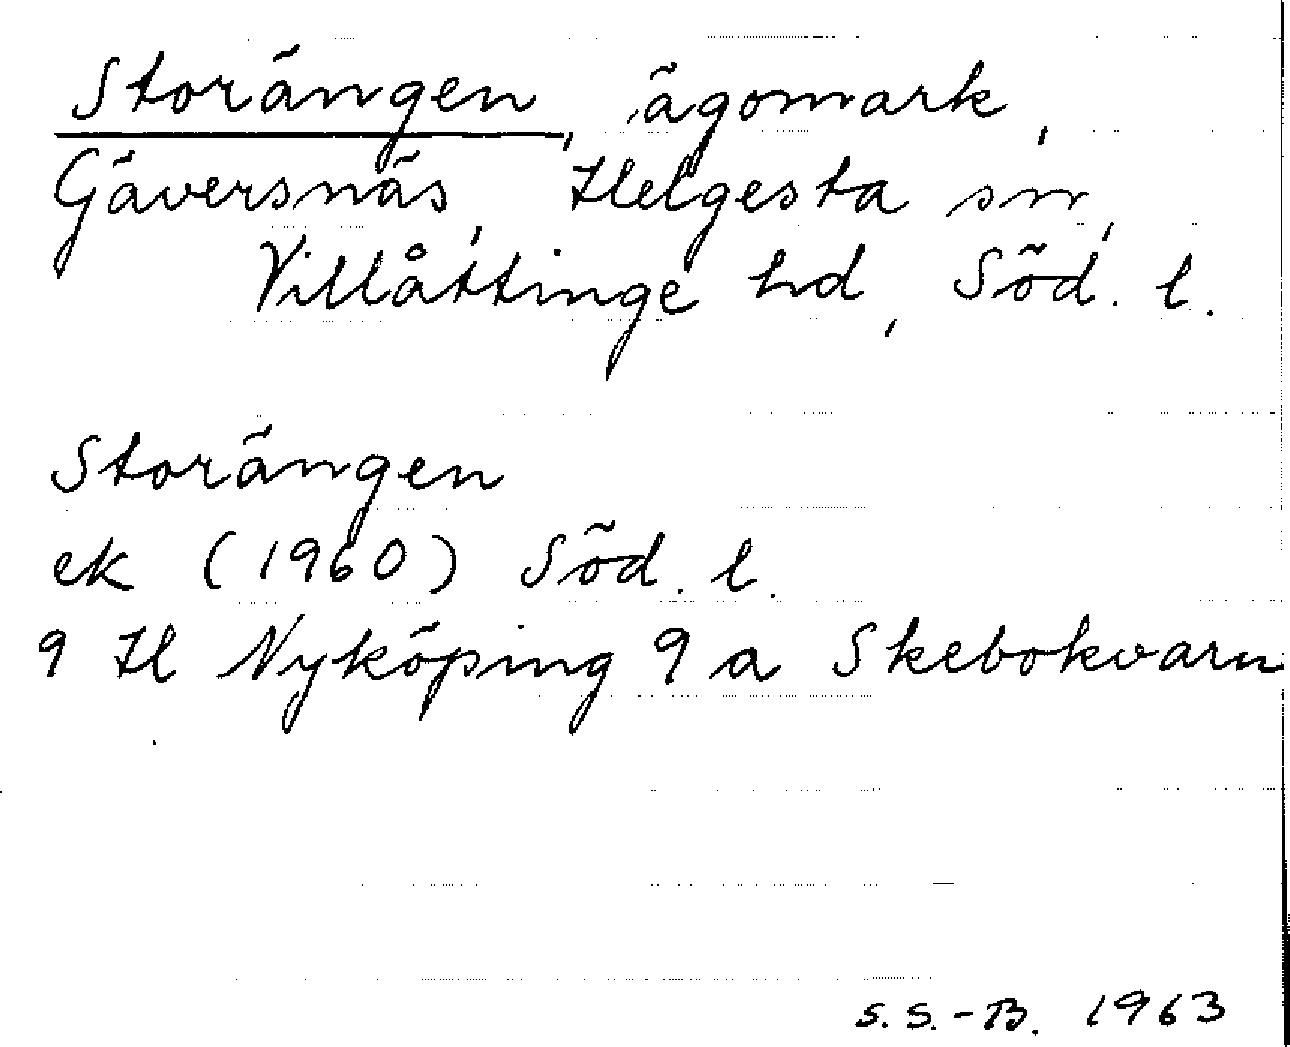 Storängen, ägomark,
Gäversnäs, Helgesta sn,
Villåttinge hd, Söd. l.
Storängen
ek (1960) Söd. l.
9 H Nyköping 9 a Skebokvarn
S.S.-B. 1963